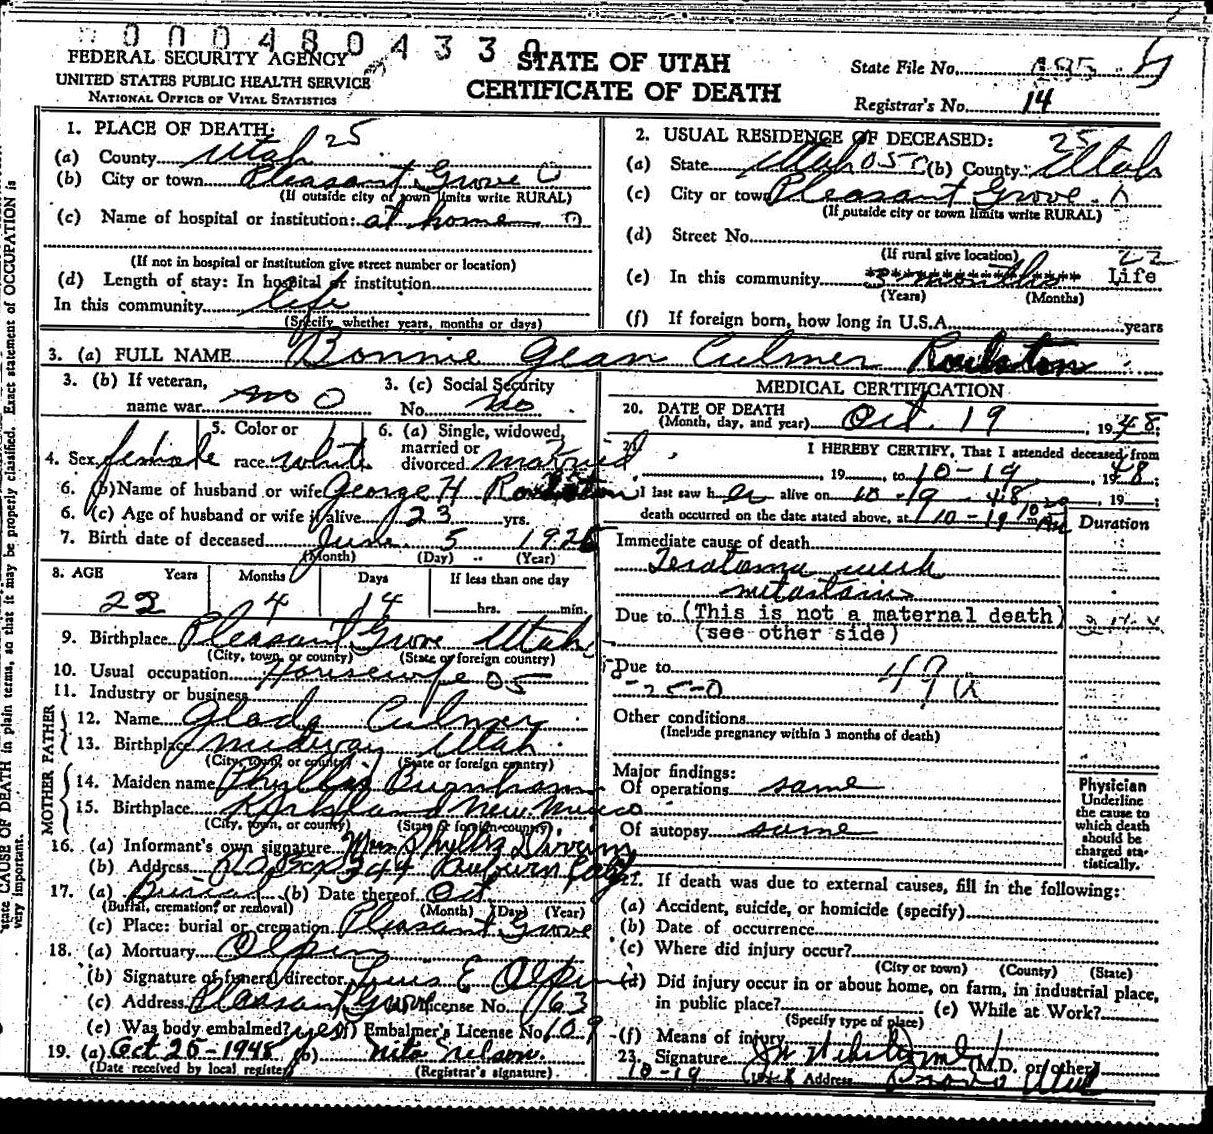 0000480433
FEDERAL SECURITY AGENCY
UNITED STATES PUBLIC HEALTH SERVICE
NATIONAL OFFICE OF VITAL STATISTICS
STATE OF UTAH
CERTIFICATE OF DEATH
State File No.
Registrar's No. 14
state CAUSE OF DEATH in plain terms, so that it may be properly classified. Exact statement of OCCUPATION is
very important.
1. PLACE OF DEATH:
(a) County Utah 25
(b) City or town Pleasant Grove 0
(If outside city or town limits write RURAL)
(c) Name of hospital or institution: at home 0
(If not in hospital or institution give street number or location)
(d) Length of stay: In hospital or institution
In this community life
(Specify whether years, months or days)
2. USUAL RESIDENCE OF DECEASED:
(a) State Utah (b) County Utah 25
(c) City or town Pleasant Grove.
(If outside city or town limits write RURAL)
(d) Street No.
(If rural give location)
(e) In this community 3 months Life 22
(Years) (Months)
(f) If foreign born, how long in U.S.A. years
3. (a) FULL NAME Bonnie Jean Culmer Roulston
3. (b) If veteran, name war no 0
3. (c) Social Security No. no
4. Sex female
5. Color or race white
6. (a) Single, widowed, married or divorced married
6. (b) Name of husband or wife George H Roulston
6. (c) Age of husband or wife if alive 23 yrs.
7. Birth date of deceased June 5 1926
(Month) (Day) (Year)
8. AGE Years Months Days If less than one day
22 4 14 hrs. min.
9. Birthplace Pleasant Grove Utah
(City, town, or county) (State or foreign country)
10. Usual occupation Housewife 05
11. Industry or business
FATHER
12. Name Glade Culmer
13. Birthplace Midway Utah
(City, town, or county) (State or foreign country)
MOTHER
14. Maiden name Phyllis Burnham
15. Birthplace Kirkland New Mexico
(City, town, or county) (State or foreign country)
16. (a) Informant's own signature Mrs. Phyllis
(b) Address P.O. Box 344 Auburn Calif
17. (a) Burial (b) Date thereof Oct
(Burial, cremation, or removal) (Month) (Day) (Year)
(c) Place: burial or cremation Pleasant Grove
18. (a) Mortuary Olpin
(b) Signature of funeral director Luis E Olpin
(c) Address Pleasant Grove License No. 163
(e) Was body embalmed? yes (f) Embalmer's License No. 109
19. (a) Oct 25-1948 (b) Nita Nelson.
(Date received by local registrar) (Registrar's signature)
MEDICAL CERTIFICATION
20. DATE OF DEATH
(Month, day, and year) Oct. 19, 1948
21. I HEREBY CERTIFY, That I attended deceased from
19 to 10-19, 1948;
I last saw her alive on 10-19-48, 19
death occurred on the date stated above, at 10-19
Duration
Immediate cause of death
Teratoma with
metastasis
Due to (This is not a maternal death)
(see other side)
Due to
-25-0 49
Other conditions
(Include pregnancy within 3 months of death)
Major findings:
Of operations same
Of autopsy same
Physician
Underline
the cause to
which death
should be
charged sta-
tistically.
22. If death was due to external causes, fill in the following:
(a) Accident, suicide, or homicide (specify)
(b) Date of occurrence
(c) Where did injury occur?
(City or town) (County) (State)
(d) Did injury occur in or about home, on farm, in industrial place,
in public place? (e) While at Work?
(Specify type of place)
(f) Means of injury
23. Signature (M.D. or other)
10-19 1948 Address Provo Utah